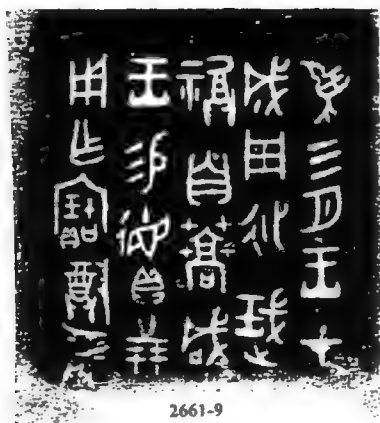 隹三月王才
成周延珷
福自蒿咸
王易德貝廿朋
用乍寶尊彝
2661-9